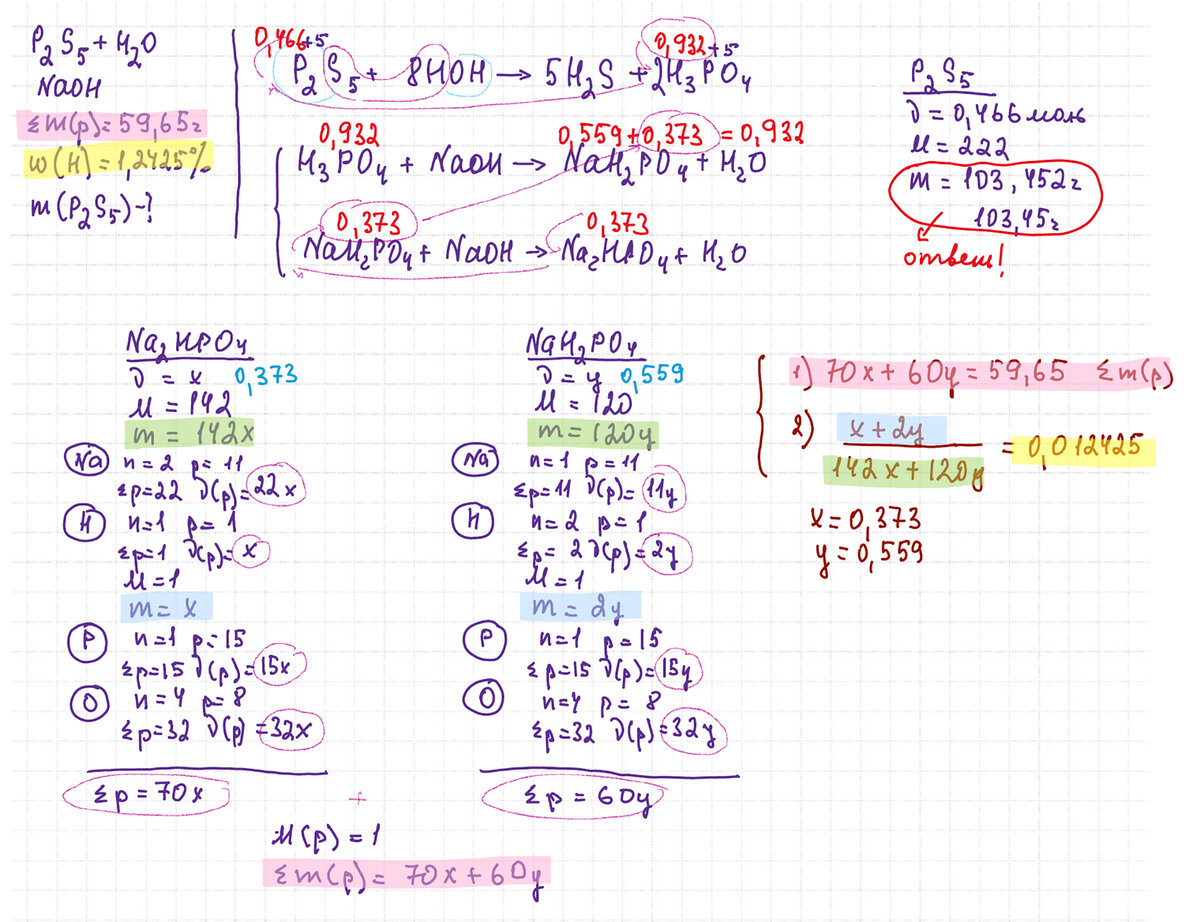 P₂S₅ + H₂O
NaOH
Σm(p) = 59,65г
w(H) = 1,2425%
m(P₂S₅) - ?
0,466 +5 0,932 +5
P₂S₅ + 8HOH → 5H₂S + 2H₃PO₄
0,932 0,559 + 0,373 = 0,932
H₃PO₄ + NaOH → NaH₂PO₄ + H₂O
0,373 0,373
NaH₂PO₄ + NaOH → Na₂HPO₄ + H₂O
P₂S₅
ν = 0,466 моль
M = 222
m = 103,452г
103,45г
ответ!
Na₂HPO₄
ν = x 0,373
M = 142
m = 142x
Na n = 2 p = 11
Σp = 22 ν(p) = 22x
H n = 1 p = 1
Σp = 1 ν(p) = x
M = 1
m = x
P n = 1 p = 15
Σp = 15 ν(p) = 15x
O n = 4 p = 8
Σp = 32 ν(p) = 32x
Σp = 70x
NaH₂PO₄
ν = y 0,559
M = 120
m = 120y
Na n = 1 p = 11
Σp = 11 ν(p) = 11y
H n = 2 p = 1
Σp = 2 ν(p) = 2y
M = 1
m = 2y
P n = 1 p = 15
Σp = 15 ν(p) = 15y
O n = 4 p = 8
Σp = 32 ν(p) = 32y
Σp = 60y
+
M(p) = 1
Σm(p) = 70x + 60y
1) 70x + 60y = 59,65 Σm(p)
2) x + 2y
142x + 120y
= 0,012425
x = 0,373
y = 0,559